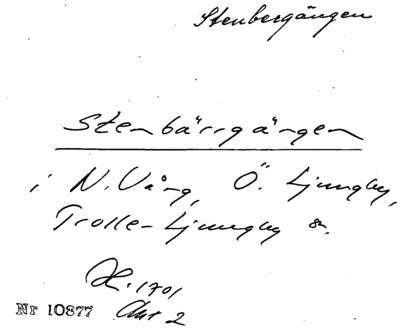 Stenbergängen
Stenbärrgängen
i N. Vång, Ö. Ljungby,
Trolle-Ljungby &.
H. 1701
Nr 10877 Akt 2